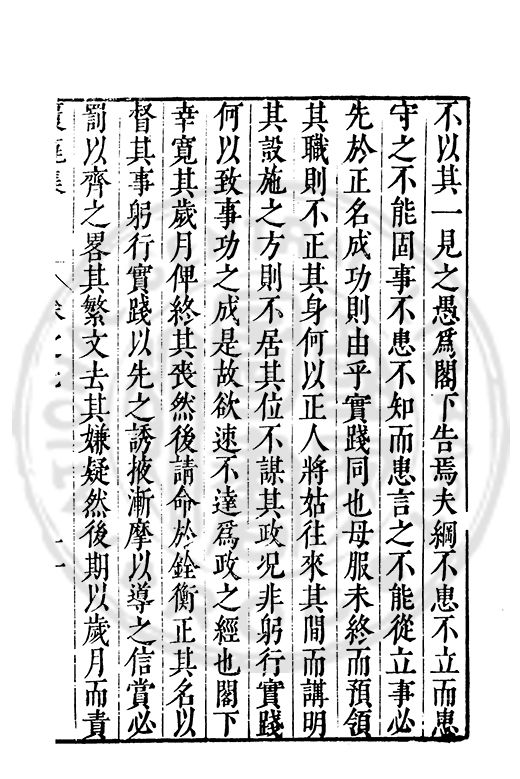 不以其一見之愚爲閣下告焉夫綱不患不立而患
守之不能固事不患不知而患言之不能從立事必
先於正名成功則由乎實踐同也母服未終而預領
其職則不正其身何以正人將姑往來其間而講明
其設施之方則不居其位不謀其政况非躬行實踐
何以致事功之成是故欲速不達爲政之經也閣下
幸寬其歲月俾終其喪然後請命於銓衡正其名以
督其事躬行實踐以先之誘掖漸摩以導之信賞必
罰以齊之畧其繁文去其嫌疑然後期以歲月而責